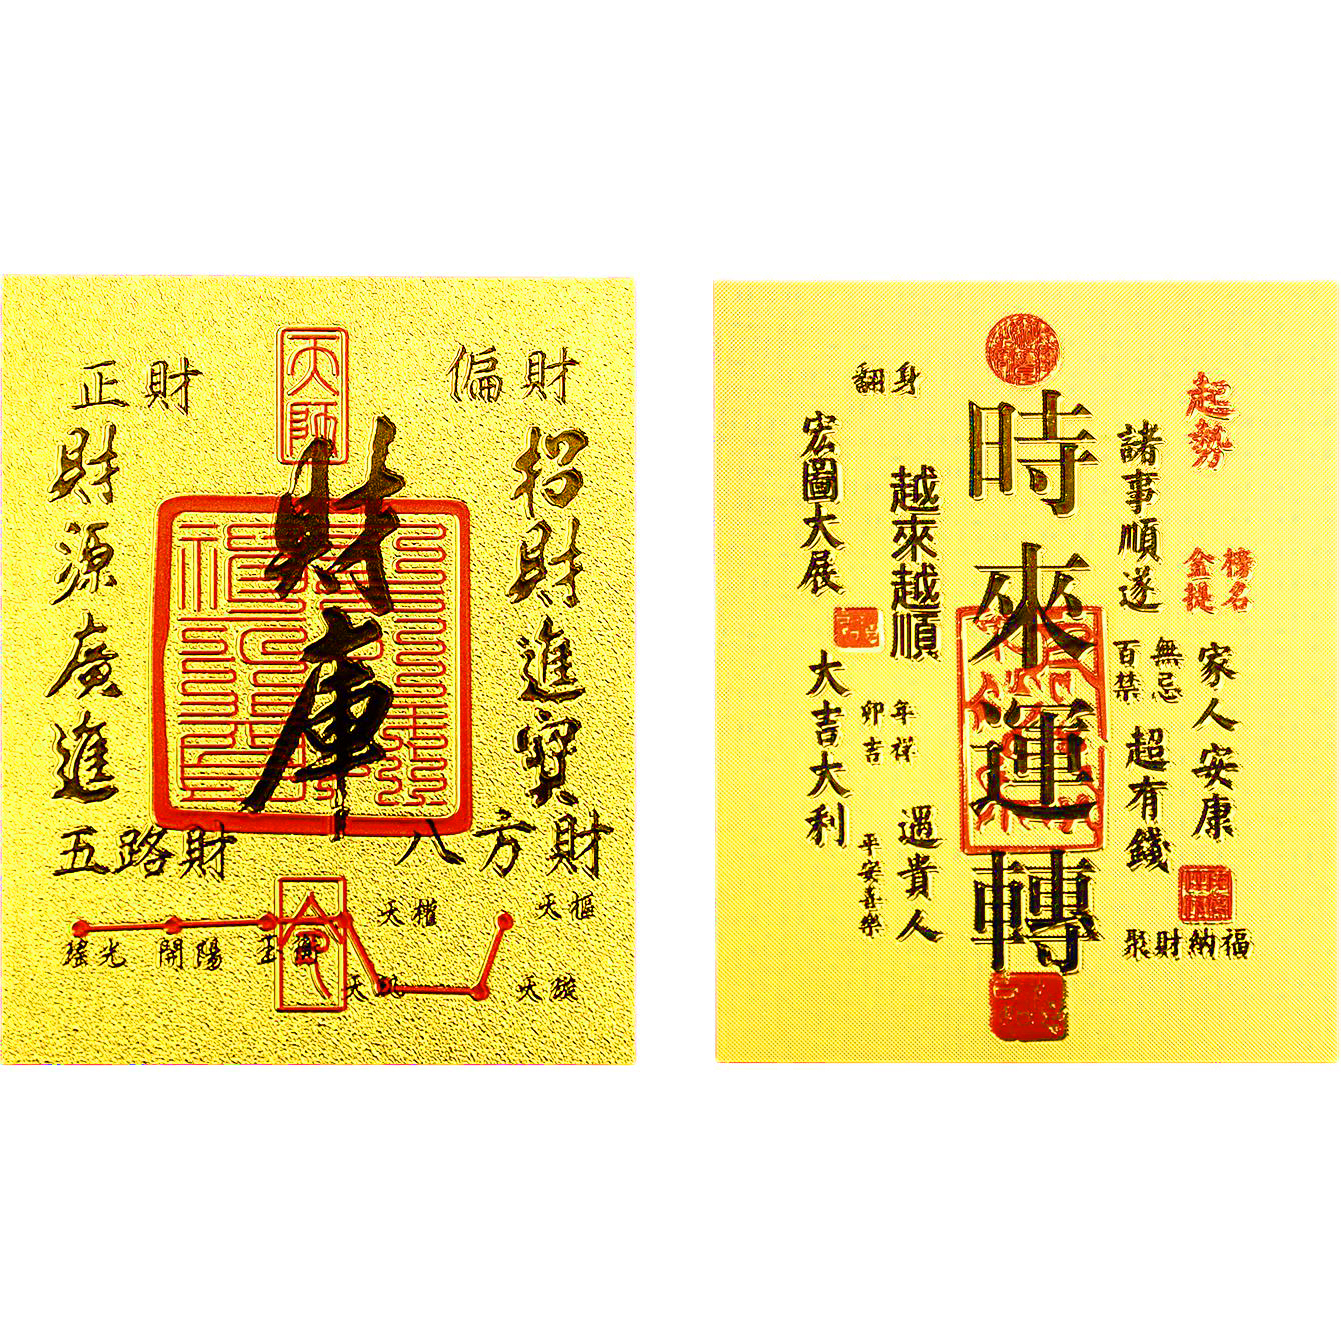 天師
偏財
正財
招財進寶
財庫
財源廣進
八方財
五路財
天樞
天權
天璇
天璣
玉衡
開陽
瑤光
令
起勢
諸事順遂
金榜
提名
百無
禁忌
家人安康
超有錢
聚財納福
時來運轉
翻身
越來越順
宏圖大展
卯年
吉祥
大吉大利
遇貴人
平安喜樂